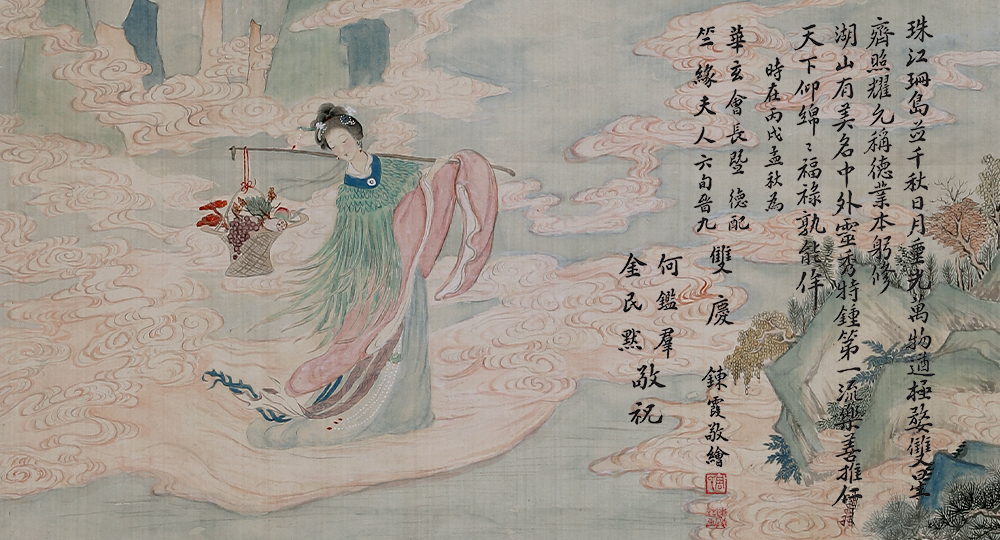 珠江珊島並千秋日月重光萬物遒極婺雙星
齊照耀允稱德業本躬修
湖山有美名中外靈秀特鍾第一流樂善推仁
天下仰綿〻福祿孰能侔
時在丙戌孟秋為
華玄會長暨 德配
竺緣夫人六旬晉九 雙慶
鍊霞敬繪
何鑑羣
金民默 敬祝